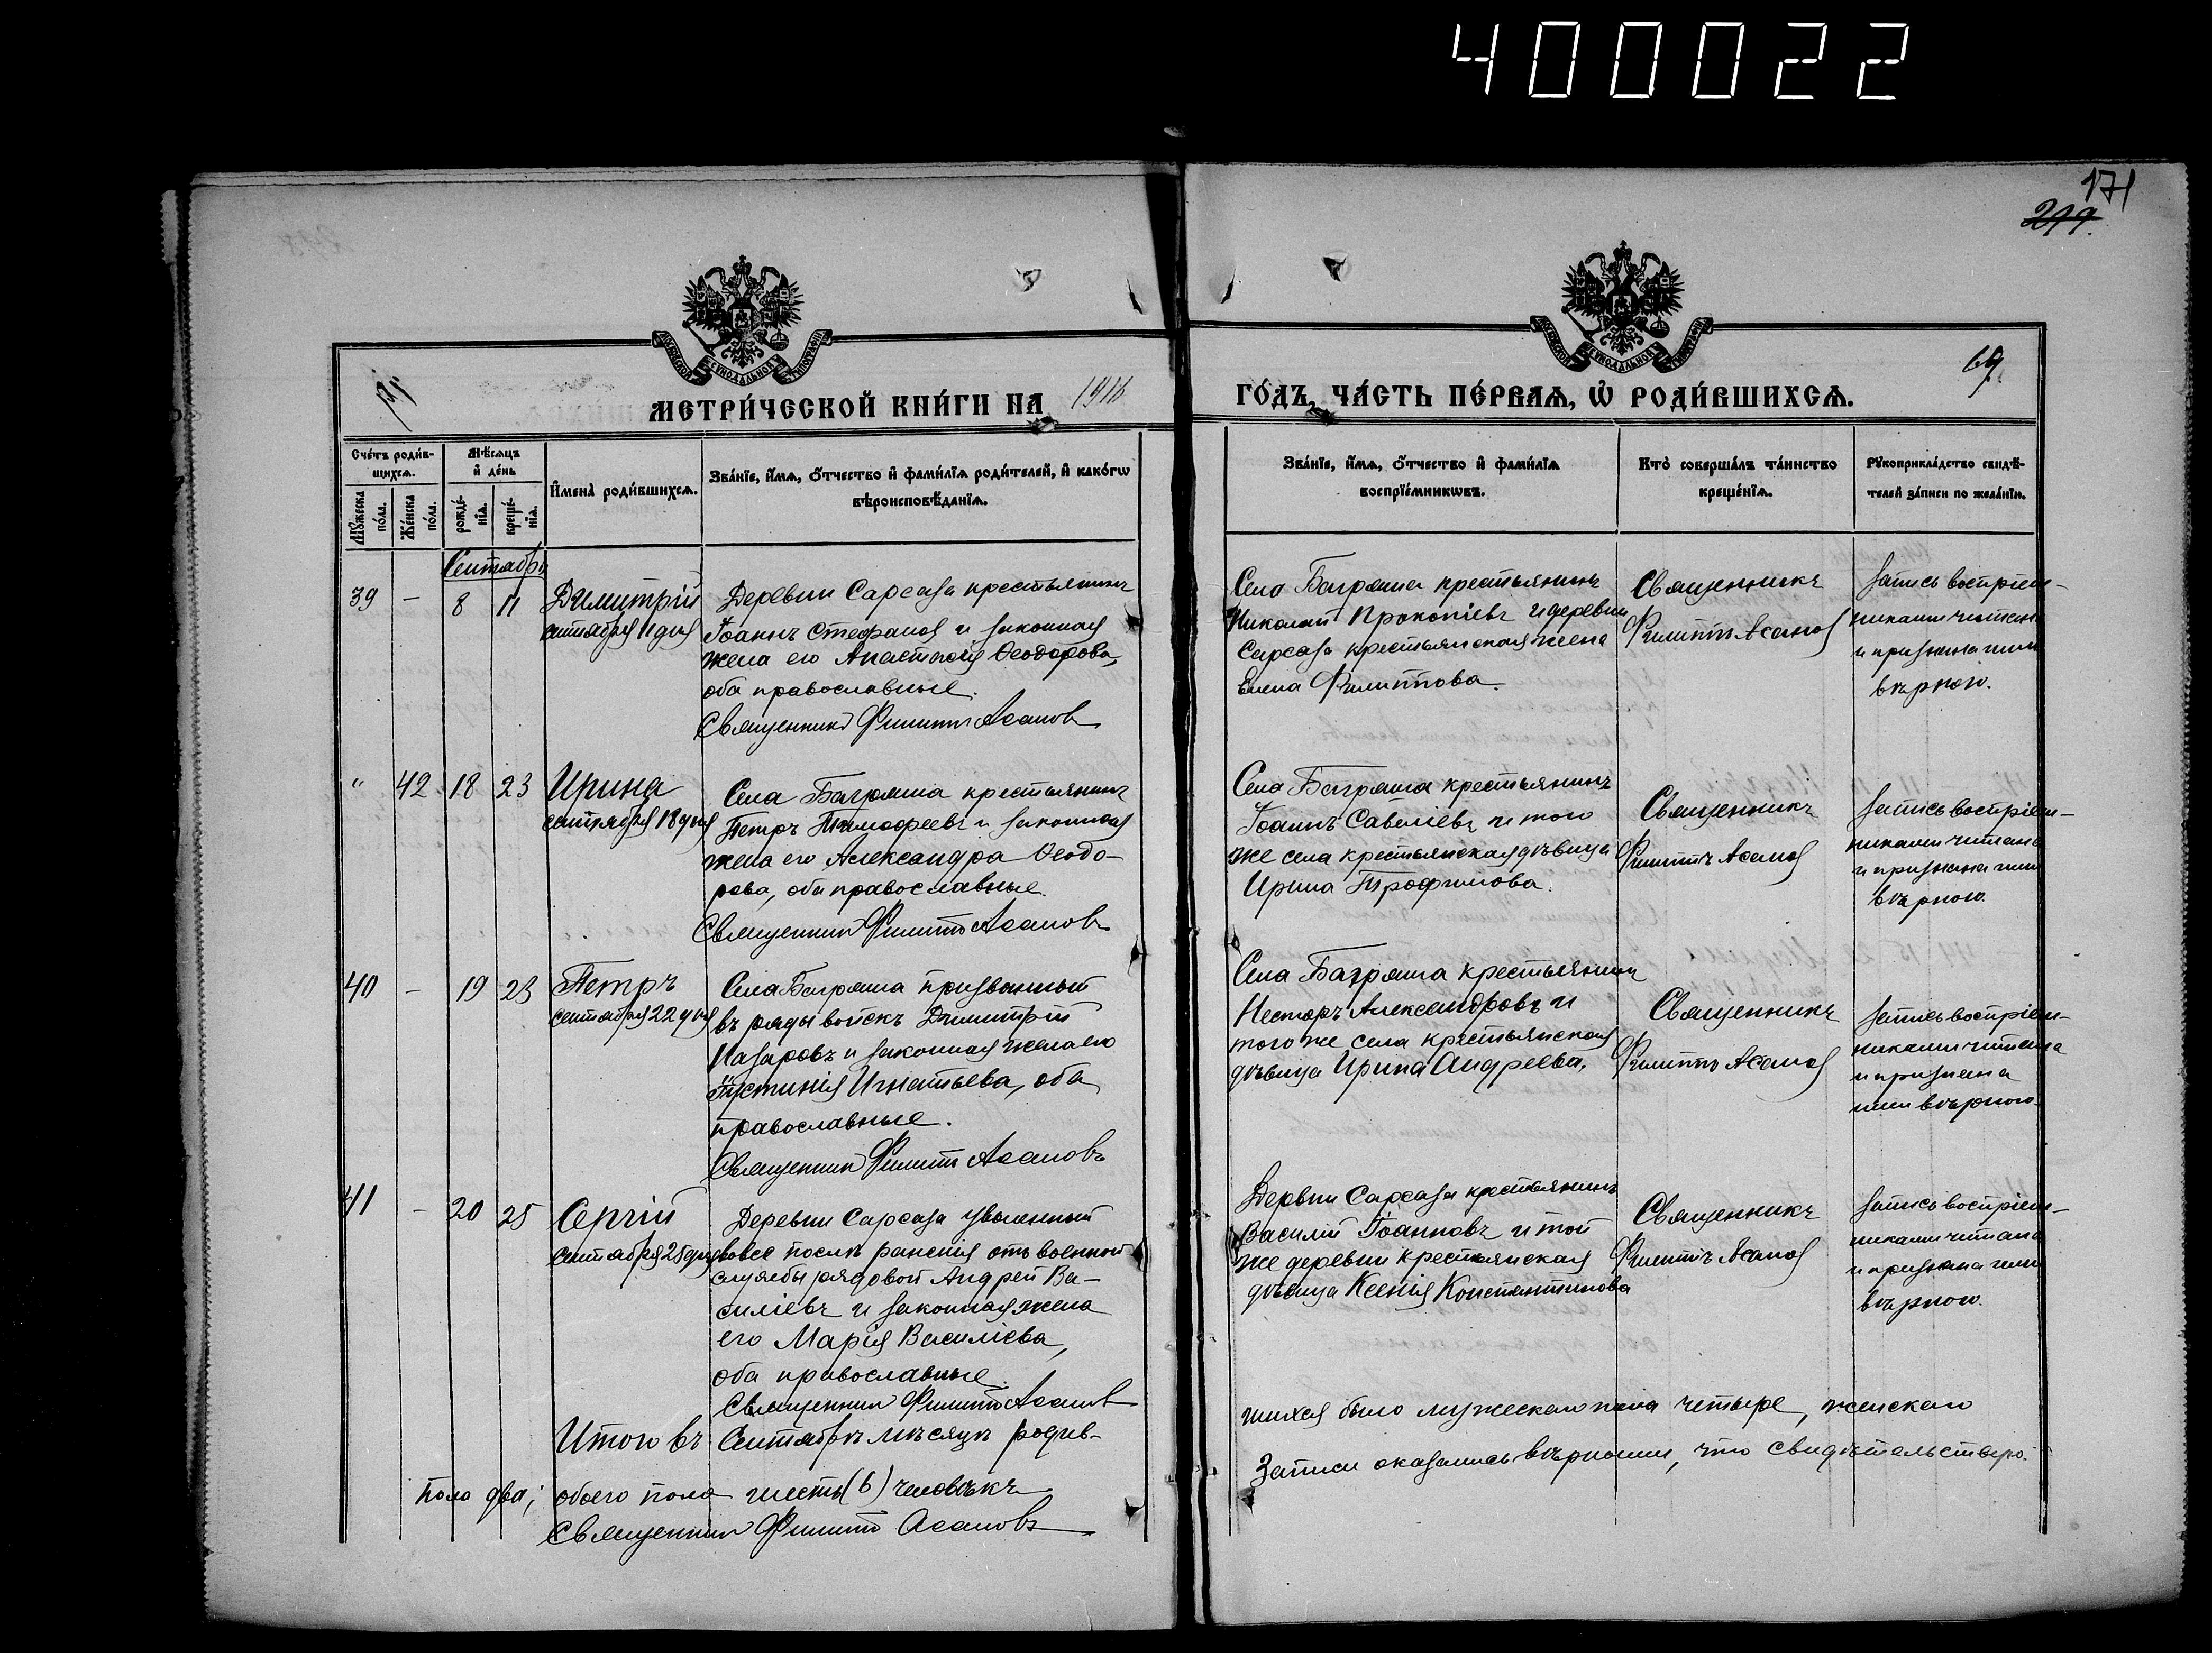 400022
171
299.
МОСКОВСКОЙ СѴНОДАЛЬНОЙ ТИПОГРАФІИ
МОСКОВСКОЙ СѴНОДАЛЬНОЙ ТИПОГРАФІИ
69.
МЕТРИ́ЧЕСКОЙ КНИ́ГИ НА 1916 ГО́ДЪ, ЧА́СТЬ ПЕ́РВАѦ, Ѡ҆ РОДИ́ВШИХСѦ.
Сче́тъ роди́в-
шихсѧ.
Мꙋ́жеска по́ла.
Же́нска по́ла.
Мѣ́сѧцъ
и҆ де́нь
рожде́-нїѧ.
креще́-нїѧ.
И҆мена̀ роди́вшихсѧ.
Зва́нїе, и҆́мѧ, ѻ҆́тчество и҆ фами́лїѧ роди́телей, и҆ како́гѡ
вѣроисповѣ́данїѧ.
Зва́нїе, и҆́мѧ, ѻ҆́тчество и҆ фами́лїѧ
воспрїе́мникѡвъ.
Кто̀ соверша́лъ та́инство
креще́нїѧ.
Рꙋкоприкла́дство свидѣ́-
телей за́писи по жела́нїю.
Сентябрь
39 — 8 11
Димитрій
сентября 11 дня
Деревни Сарсаза крестьянинъ
Іоаннъ Стефановъ и законная
жена его Анастасія Ѳеодорова,
оба православные.
Священникъ Филиппъ Асановъ
Села Баграша крестьянинъ
Николай Прокопіевъ и деревни
Сарсаза крестьянская жена
Елена Филиппова.
Священникъ
Филиппъ Асановъ
Запись воспріем-
никами читана
и признана ими
вѣрною.
" 42 18 23
Ирина
сентября 18 дня
Села Баграша крестьянинъ
Петръ Тимофеевъ и законная
жена его Александра Ѳеодо-
рова, оба православные.
Священникъ Филиппъ Асановъ
Села Баграша крестьянинъ
Іоаннъ Савеліевъ и того
же села крестьянская дѣвица
Ирина Трофимова.
Священникъ
Филиппъ Асановъ
Запись воспріем-
никами читана
и признана ими
вѣрною.
40 — 19 23
Петръ
сентября 22 дня
Села Баграша призванный
въ ряды войскъ Димитрій
Назаровъ и законная жена его
Іустинія Игнатьева, оба
православные.
Священникъ Филиппъ Асановъ
Села Баграша крестьянинъ
Несторъ Александровъ и
того же села крестьянская
дѣвица Ирина Андреева.
Священникъ
Филиппъ Асановъ
Запись воспріем-
никами читана
и признана
ими вѣрною.
41 — 20 25
Сергій
сентября 25 дня
Деревни Сарсаза уволенный
вовсе послѣ раненія отъ военной
службы рядовой Андрей Ва-
силіевъ и законная жена
его Марія Василіева,
оба православные.
Священникъ Филиппъ Асановъ
Деревни Сарсаза крестьянинъ
Василій Іоанновъ и той
же деревни крестьянская
дѣвица Ксенія Константинова
Священникъ
Филиппъ Асановъ
Запись воспріем-
никами читана
и признана ими
вѣрною.
Итого въ Сентябрѣ мѣсяцѣ родив-
шихся было мужескаго пола четыре, женскаго
пола два; обоего пола шесть (6) человѣкъ
Записи оказались вѣрными, что свидѣтельствую.
Священникъ Филиппъ Асановъ